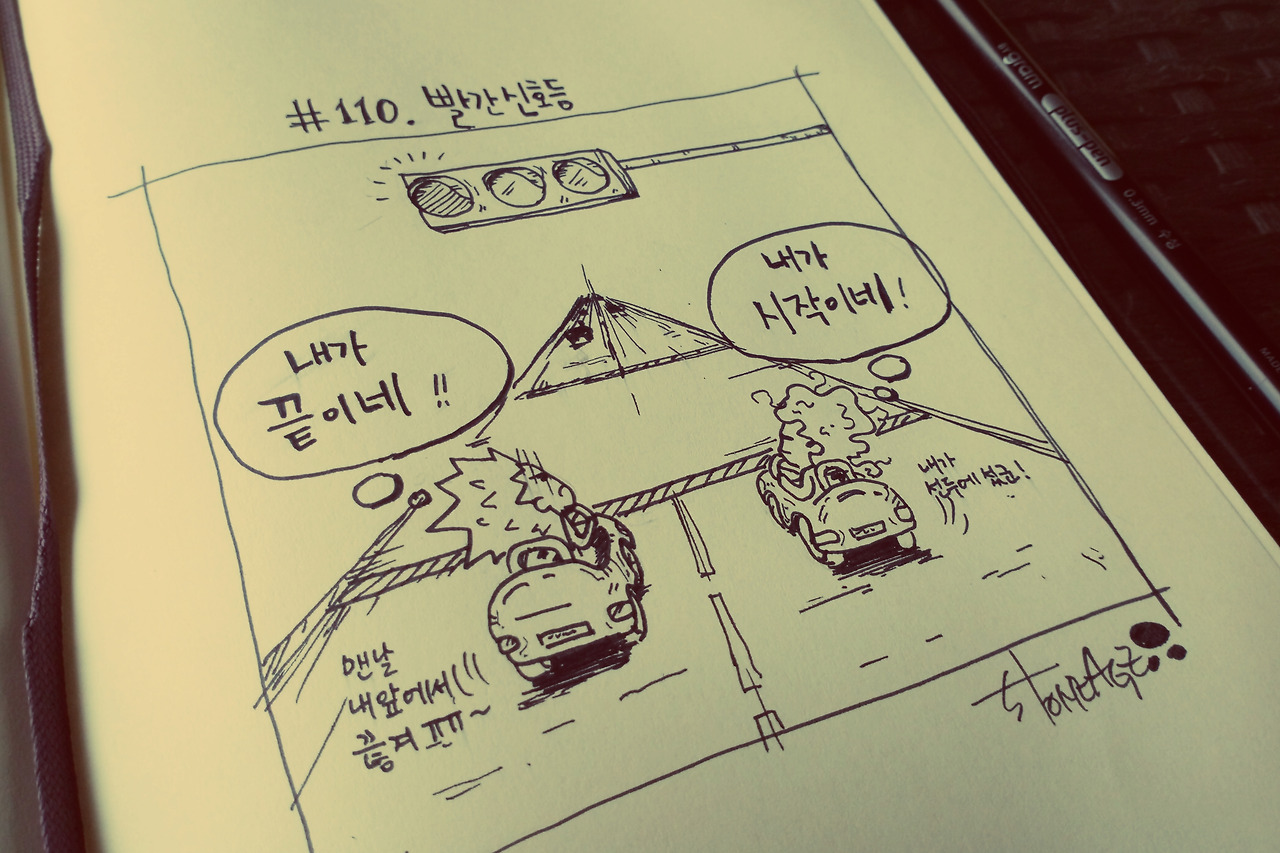 #110. 빨간신호등
내가
시작이네!
내가
끝이네!!
내가
선두에 섰군!
맨날
내앞에서
끊겨 ㅠㅠ~
STONEAGE
plus pen
0.3mm 수성